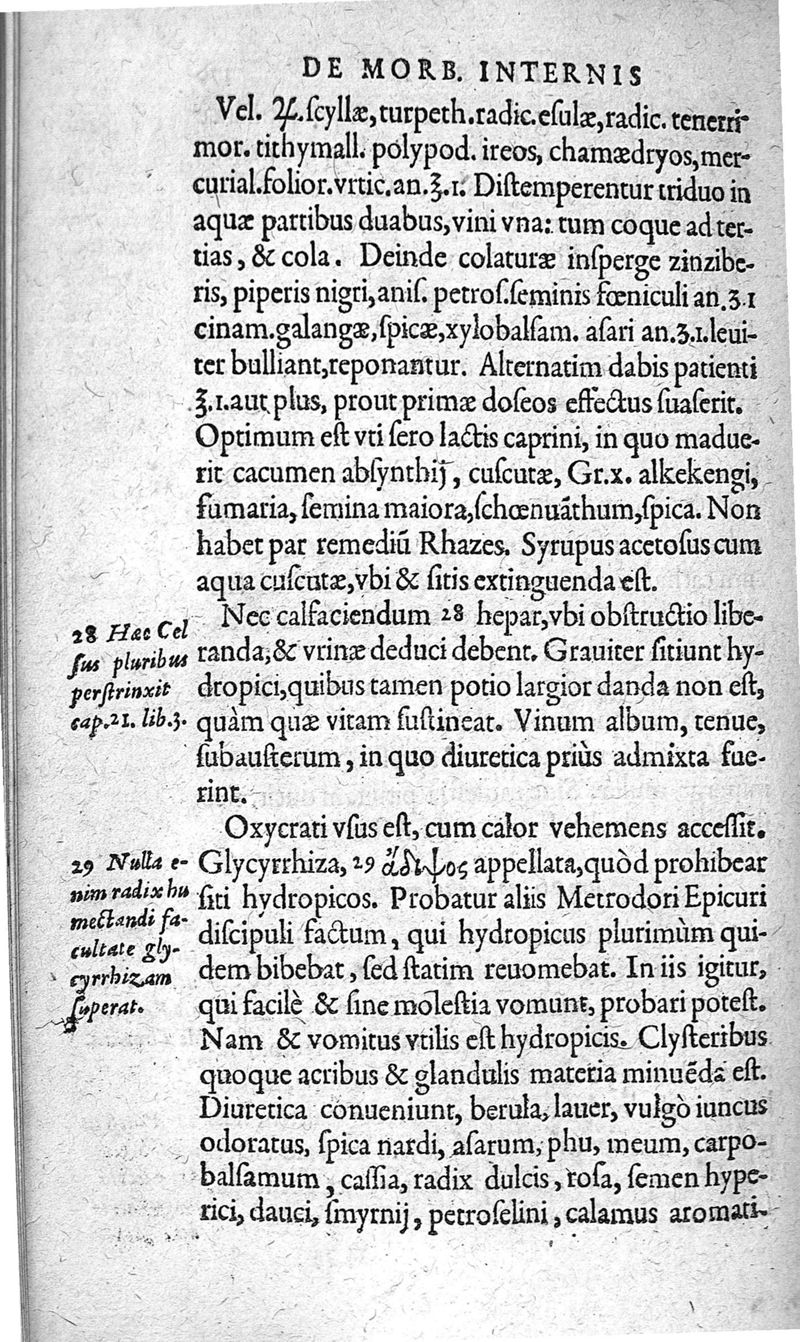 DE MORB. INTERNIS
Vel. ℞. ſcyllæ, turpeth. radic. eſulæ, radic. tenerri-
mor. tithymall. polypod. ireos, chamædryos, mer-
curial. folior. vrtic. an. ℥. 1. Diſtemperentur triduo in
aquæ partibus duabus, vini vna: tum coque ad ter-
tias, & cola. Deinde colaturæ inſperge zinzibe-
ris, piperis nigri, aniſ. petroſ. ſeminis fœniculi an. ʒ. 1
cinam. galangæ, ſpicæ, xylobalſam. aſari an. ʒ. 1. leui-
ter bulliant, reponantur. Alternatim dabis patienti
℥. 1. aut plus, prout primæ doſeos effectus ſuaſerit.
Optimum eſt vti ſero lactis caprini, in quo madue-
rit cacumen abſynthij, cuſcutæ, Gr. x. alkekengi,
fumaria, ſemina maiora, ſchœnuãthum, ſpica. Non
habet par remediũ Rhazes. Syrupus acetoſus cum
aqua cuſcutæ, vbi & ſitis extinguenda eſt.
Nec calfaciendum 28 hepar, vbi obſtructio libe-
randa, & vrinæ deduci debent. Grauiter ſitiunt hy-
dropici, quibus tamen potio largior danda non eſt,
quàm quæ vitam ſuſtineat. Vinum album, tenue,
ſubauſterum, in quo diuretica priùs admixta fue-
rint.
28 Hæc Cel
ſus pluribus
perſtrinxit
cap. 21. lib. 3.
Oxycrati vſus eſt, cum calor vehemens acceſſit.
Glycyrrhiza, 29 ἄδιψος appellata, quòd prohibear
ſiti hydropicos. Probatur aliis Metrodori Epicuri
diſcipuli factum, qui hydropicus plurimùm qui-
dem bibebat, ſed ſtatim reuomebat. In iis igitur,
qui facilè & ſine moleſtia vomunt, probari poteſt.
Nam & vomitus vtilis eſt hydropicis. Clyſteribus
quoque acribus & glandulis materia minuẽda eſt.
Diuretica conueniunt, berula, lauer, vulgò iuncus
odoratus, ſpica nardi, aſarum, phu, meum, carpo-
balſamum, caſſia, radix dulcis, roſa, ſemen hype-
rici, dauci, ſmyrnij, petroſelini, calamus aromati-
29 Nulla e-
nim radix hu
mectandi fa-
cultate gly-
cyrrhizam
ſuperat.